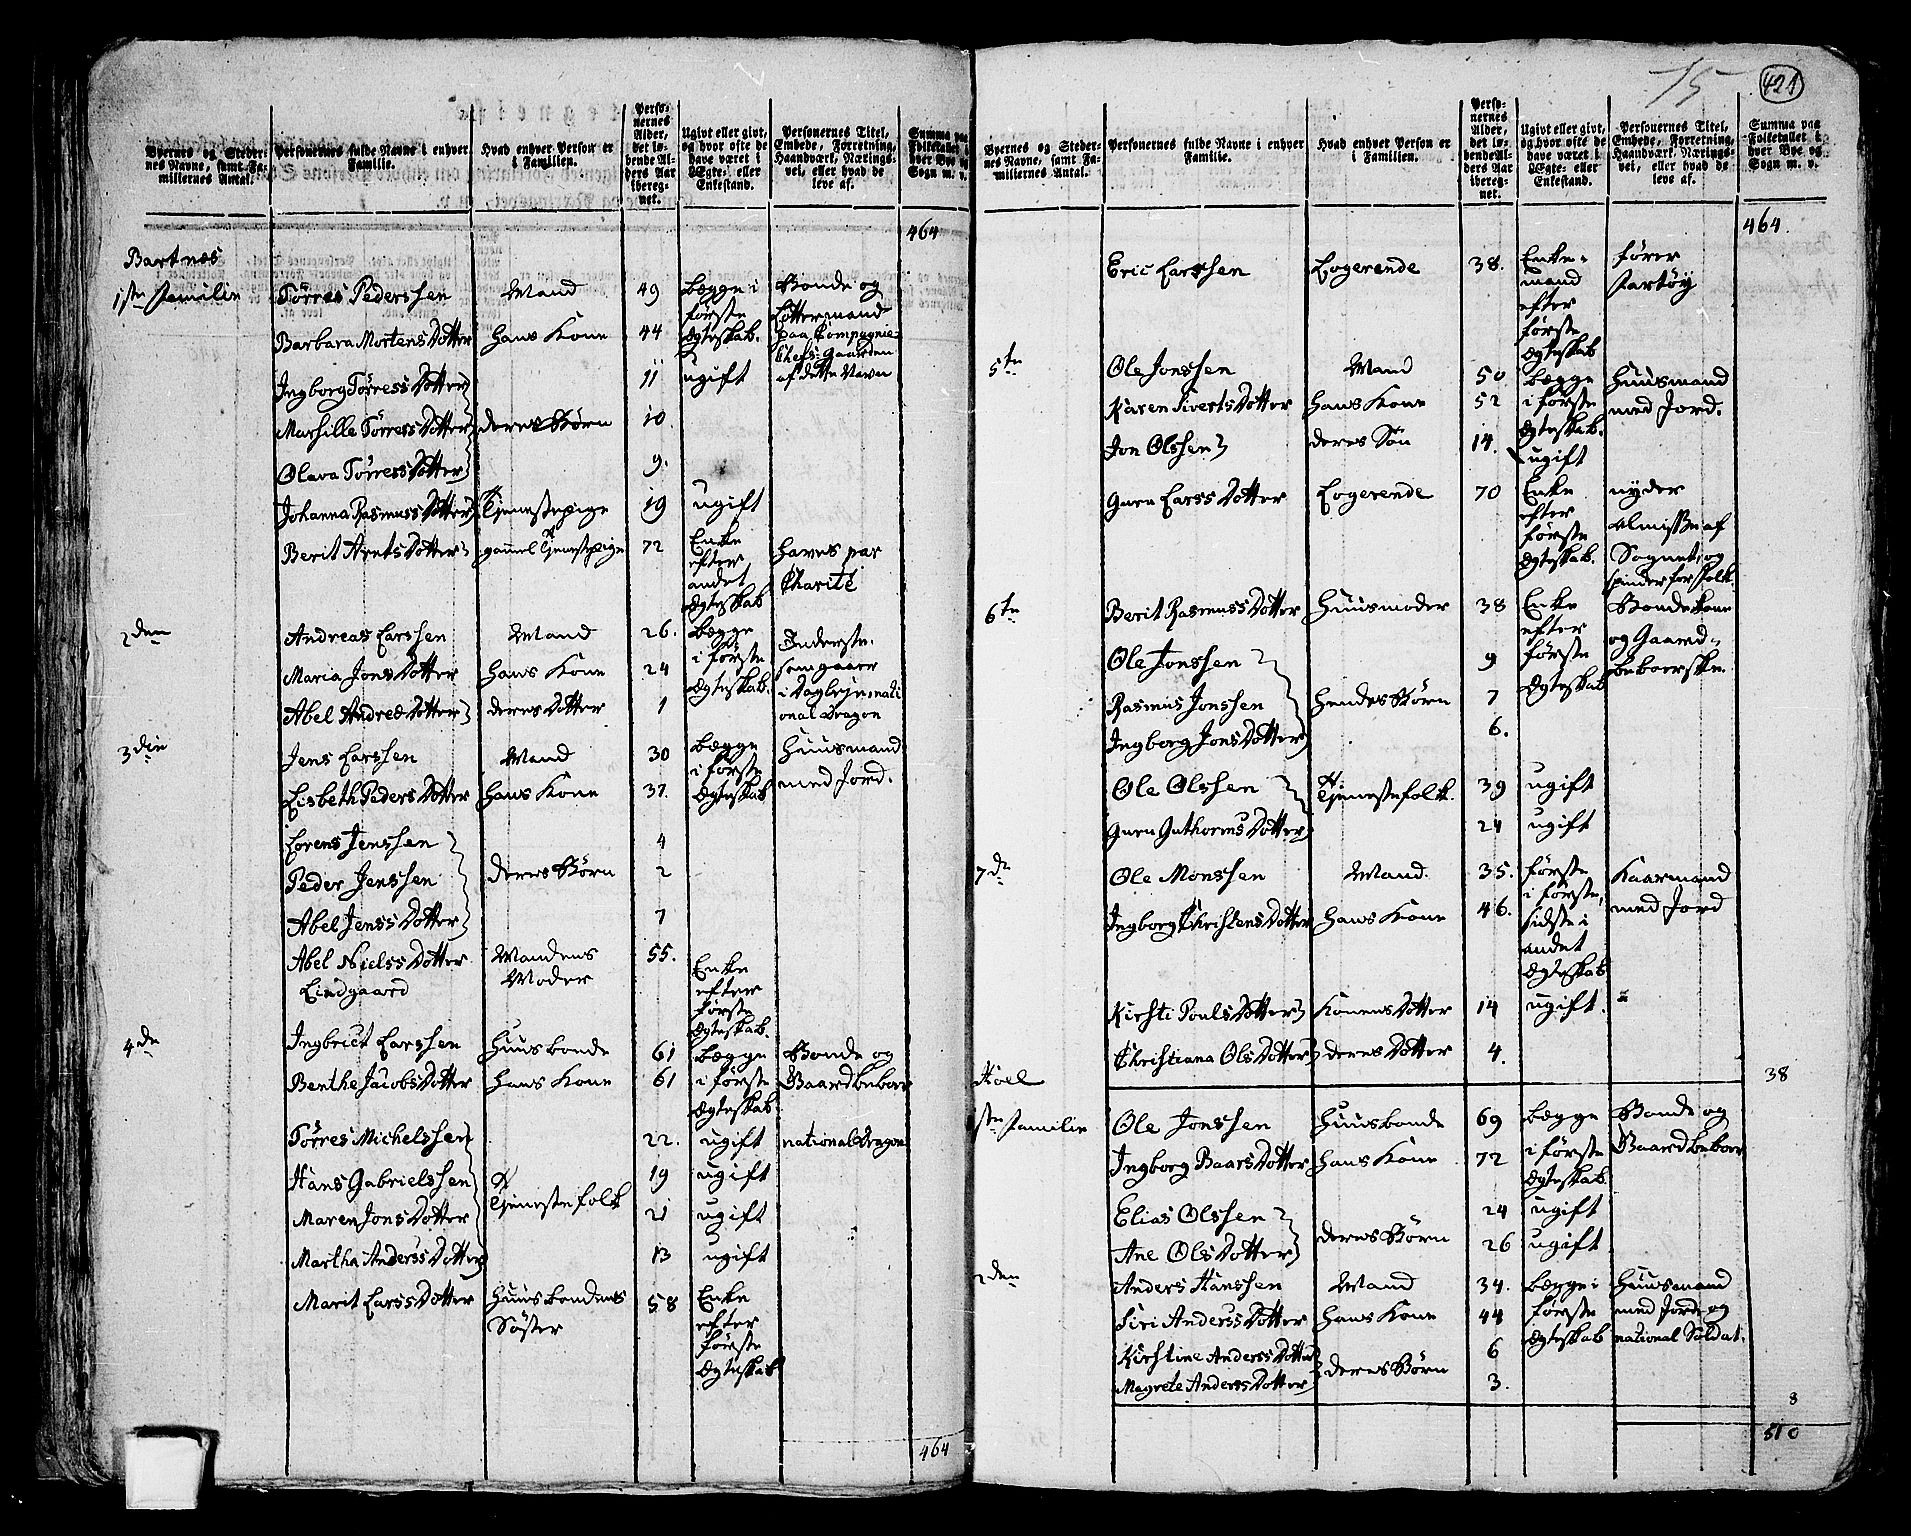 75
421
Byernes og Stedernes Navne, samt Familiernes Antal.
Personernes fulde Navne i enhver Familie.
Hvad enhver Person er i Familien.
Personernes Alder, det løbende Alders Aar iberegnet.
Ugivt eller givt, og hvor ofte de have været i Ægte- eller Enkestand.
Personernes Titel, Embede, Forretning, Haandværk, Næringsvei, eller hvad de leve af.
Summa paa Folketallet i hver Bye og Sogn m. v.
464
Bartnes
1ste Familie Törres Pederssen Mand 49 begge i første Ægteskab. Bonde og Lottermand paa Compagnie Chefs-Gaarden af dette Navn
Barbara MortensDotter hans Kone 44
Ingborg TörressDotter 11 ugift
Marsille TörressDotter deres Børn 10
Olava TörressDotter 9.
Johanna RasmussDotter Tjenestepige 19 ugift
Berit ArntsDotter gammel Tjenestepige 72 Enke efter andet Ægteskab haves par Charité
2den Andreas Larssen Mand 26. begge i første Ægteskab. Inderste, som gaaer i Dagleje, national Dragon
Maria JonsDotter hans Kone 24
Abel AndreæDotter deres Dotter 1
3die Jens Larssen Mand 30 begge i første Ægteskab Huusmand med Jord.
Lisbeth PedersDotter hans Kone 37.
Lorens Jenssen 4
Peder Jenssen deres Børn 2
Abel JenssDotter 1
Abel NielssDotter Lindgaard Mandens Moder 55. Enke efter første Ægteskab.
4de Ingbrict Larssen Huusbonde 61 begge i første Ægteskab Bonde og Gaardbeboer
Benthe JacobsDotter hans Kone 61
Törres Michelssen 22. ugift national Dragon
Hans Gabrielssen 19 ugift
Tjenestefolk
Maren JonsDotter 21 ugift
Martha AnderssDotter 13 ugift
Marit LarssDotter Huusbondens Söster 58 Enke efter første Ægteskab
464
Byernes og Stedernes Navne, samt Familiernes Antal.
Personernes fulde Navne i enhver Familie.
Hvad enhver Person er i Familien.
Personernes Alder, det løbende Alders Aar iberegnet.
Ugivt eller givt, og hvor ofte de have været i Ægte- eller Enkestand.
Personernes Titel, Embede, Forretning, Haandværk, Næringsvei, eller hvad de leve af.
Summa paa Folketallet i hver Bye og Sogn m. v.
464.
Eric Larssen Logerende 38. Enkemand efter første Ægteskab fører Fartöy
5te Ole Jonssen Mand 50 begge i første Ægteskab. Huusmand med Jord.
Karen SivertsDotter hans Kone 52
Jon Olssen deres Sön 14. ugift
Guru LarssDotter Logerende 70 Enke efter første Ægteskab. nyder Almisse af Sognet, og spinder for Folk.
6te Berit RasmussDotter Huusmoder 38 Enke efter første Ægteskab Bondekone og Gaardbeboerske.
Ole Jonssen 9
Rasmus Jonssen hendes Børn 7
Ingborg JonsDotter 6.
Ole Olssen Tjenestefolk. 39 ugift
Guru GuthormsDotter 24 ugift
7de Ole Monssen Mand 35. første i første, sidste i andet Ægteskab Kaarmand med Jord
Ingborg ChristensDotter hans Kone 46.
Kirsti PoulsDotter Konens Dotter 14 ugift.
Christiana OlsDotter deres Dotter 4.
38
Hoel
1ste Familie Ole Jonssen Huusbonde 69 begge i første Ægteskab. Bonde og Gaardbeboer
Ingborg BaarsDotter hans Kone 72
Elias Olssen 24 ugift
deres Børn
Ane OlsDotter 26 ugift
2den Anders Hanssen Mand 34. begge i første Ægteskab Huusmand med Jord og national Soldat.
Siri AnderssDotter hans Kone 44
Kirstine AnderssDotter 6
deres Børn
Magrete AnderssDotter 3.
8
510